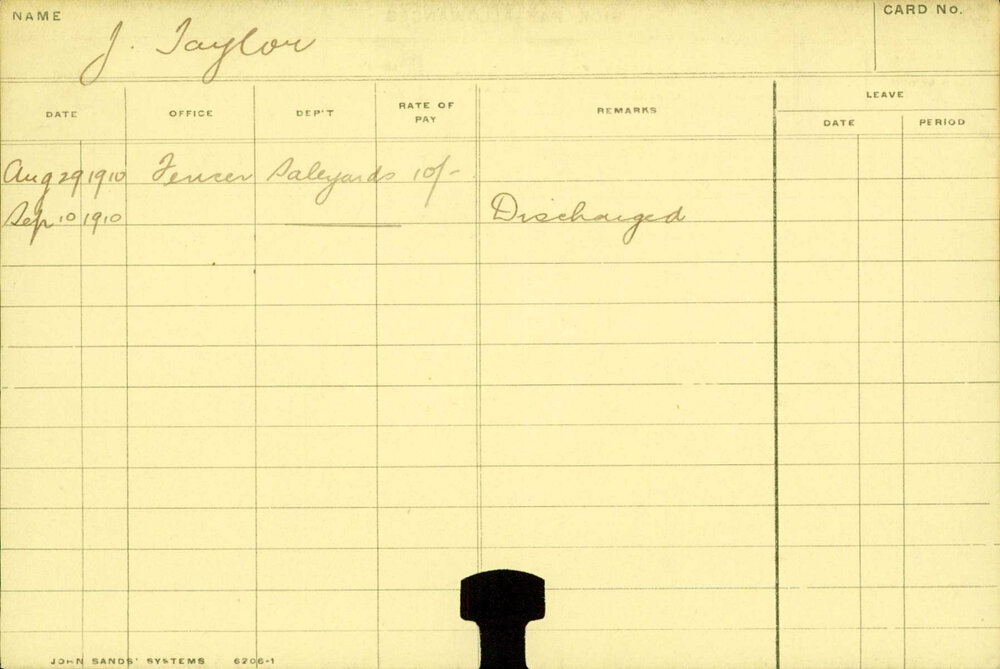 NAME
J. Taylor
CARD No.
DATE OFFICE DEP'T RATE OF PAY REMARKS LEAVE
DATE PERIOD
Aug 29 1910 Fencer Saleyards 10/-
Sep 10 1910 Discharged
JOHN SANDS' SYSTEMS 6206-1